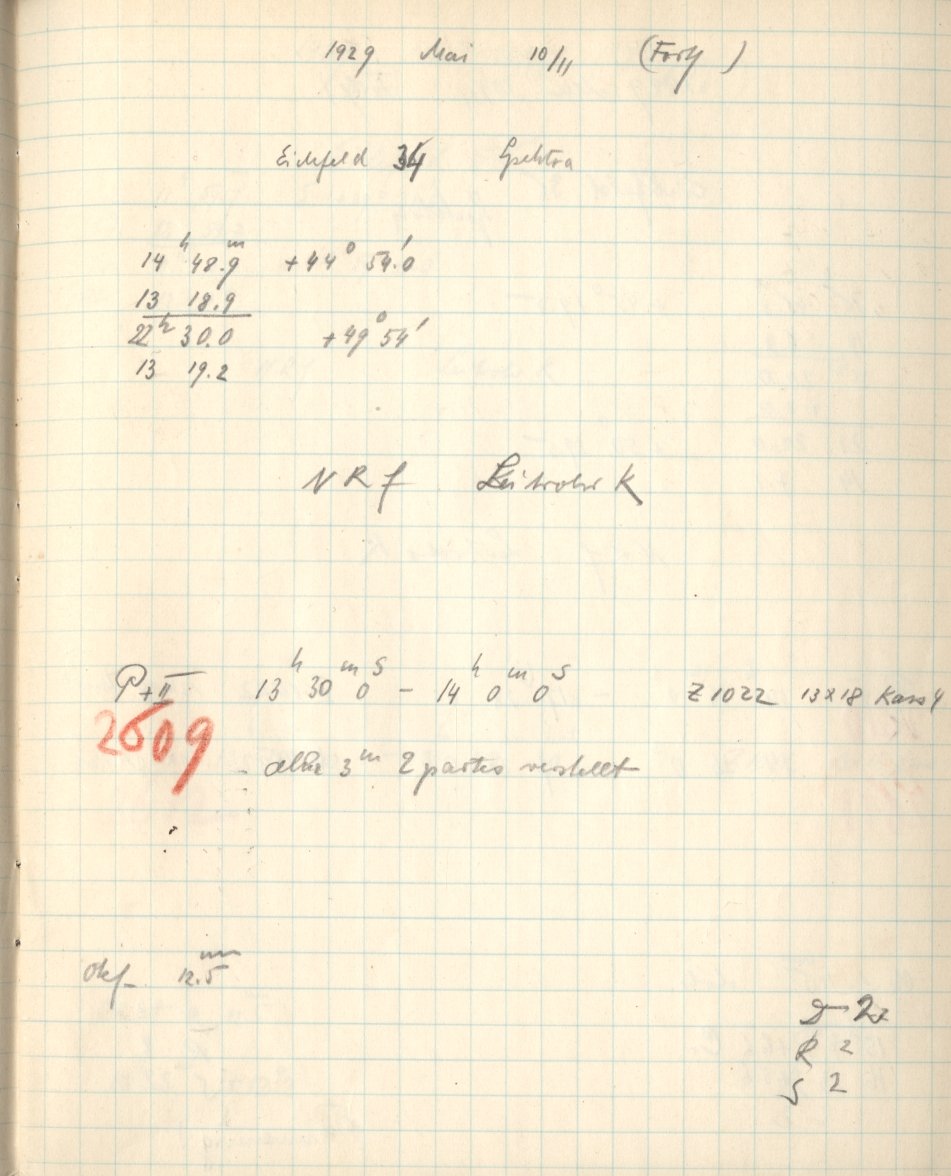 1929 Mai 10/11
Eichfeld 34 Spektra
14ʰ 48.9ᵐ +44° 54.0'
13 18.9
22ʰ 30.0 +49° 54'
13 19.2
NRf Leitrohr K
P+II 13ʰ 30ᵐ 0ˢ – 14ʰ 0ᵐ 0ˢ Z 1022 13x18 Kass 4
2609
alle 3ᵐ 2 partes verstellt
Okf 12.5ᵐᵐ
D 2
R 2
S 2